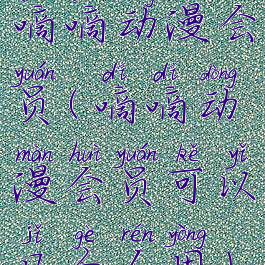 嘀嘀动漫会
yuán dí dí dòng
员(嘀嘀动
màn huì yuán kě yǐ
漫会员可以
jǐ gè rén yòng